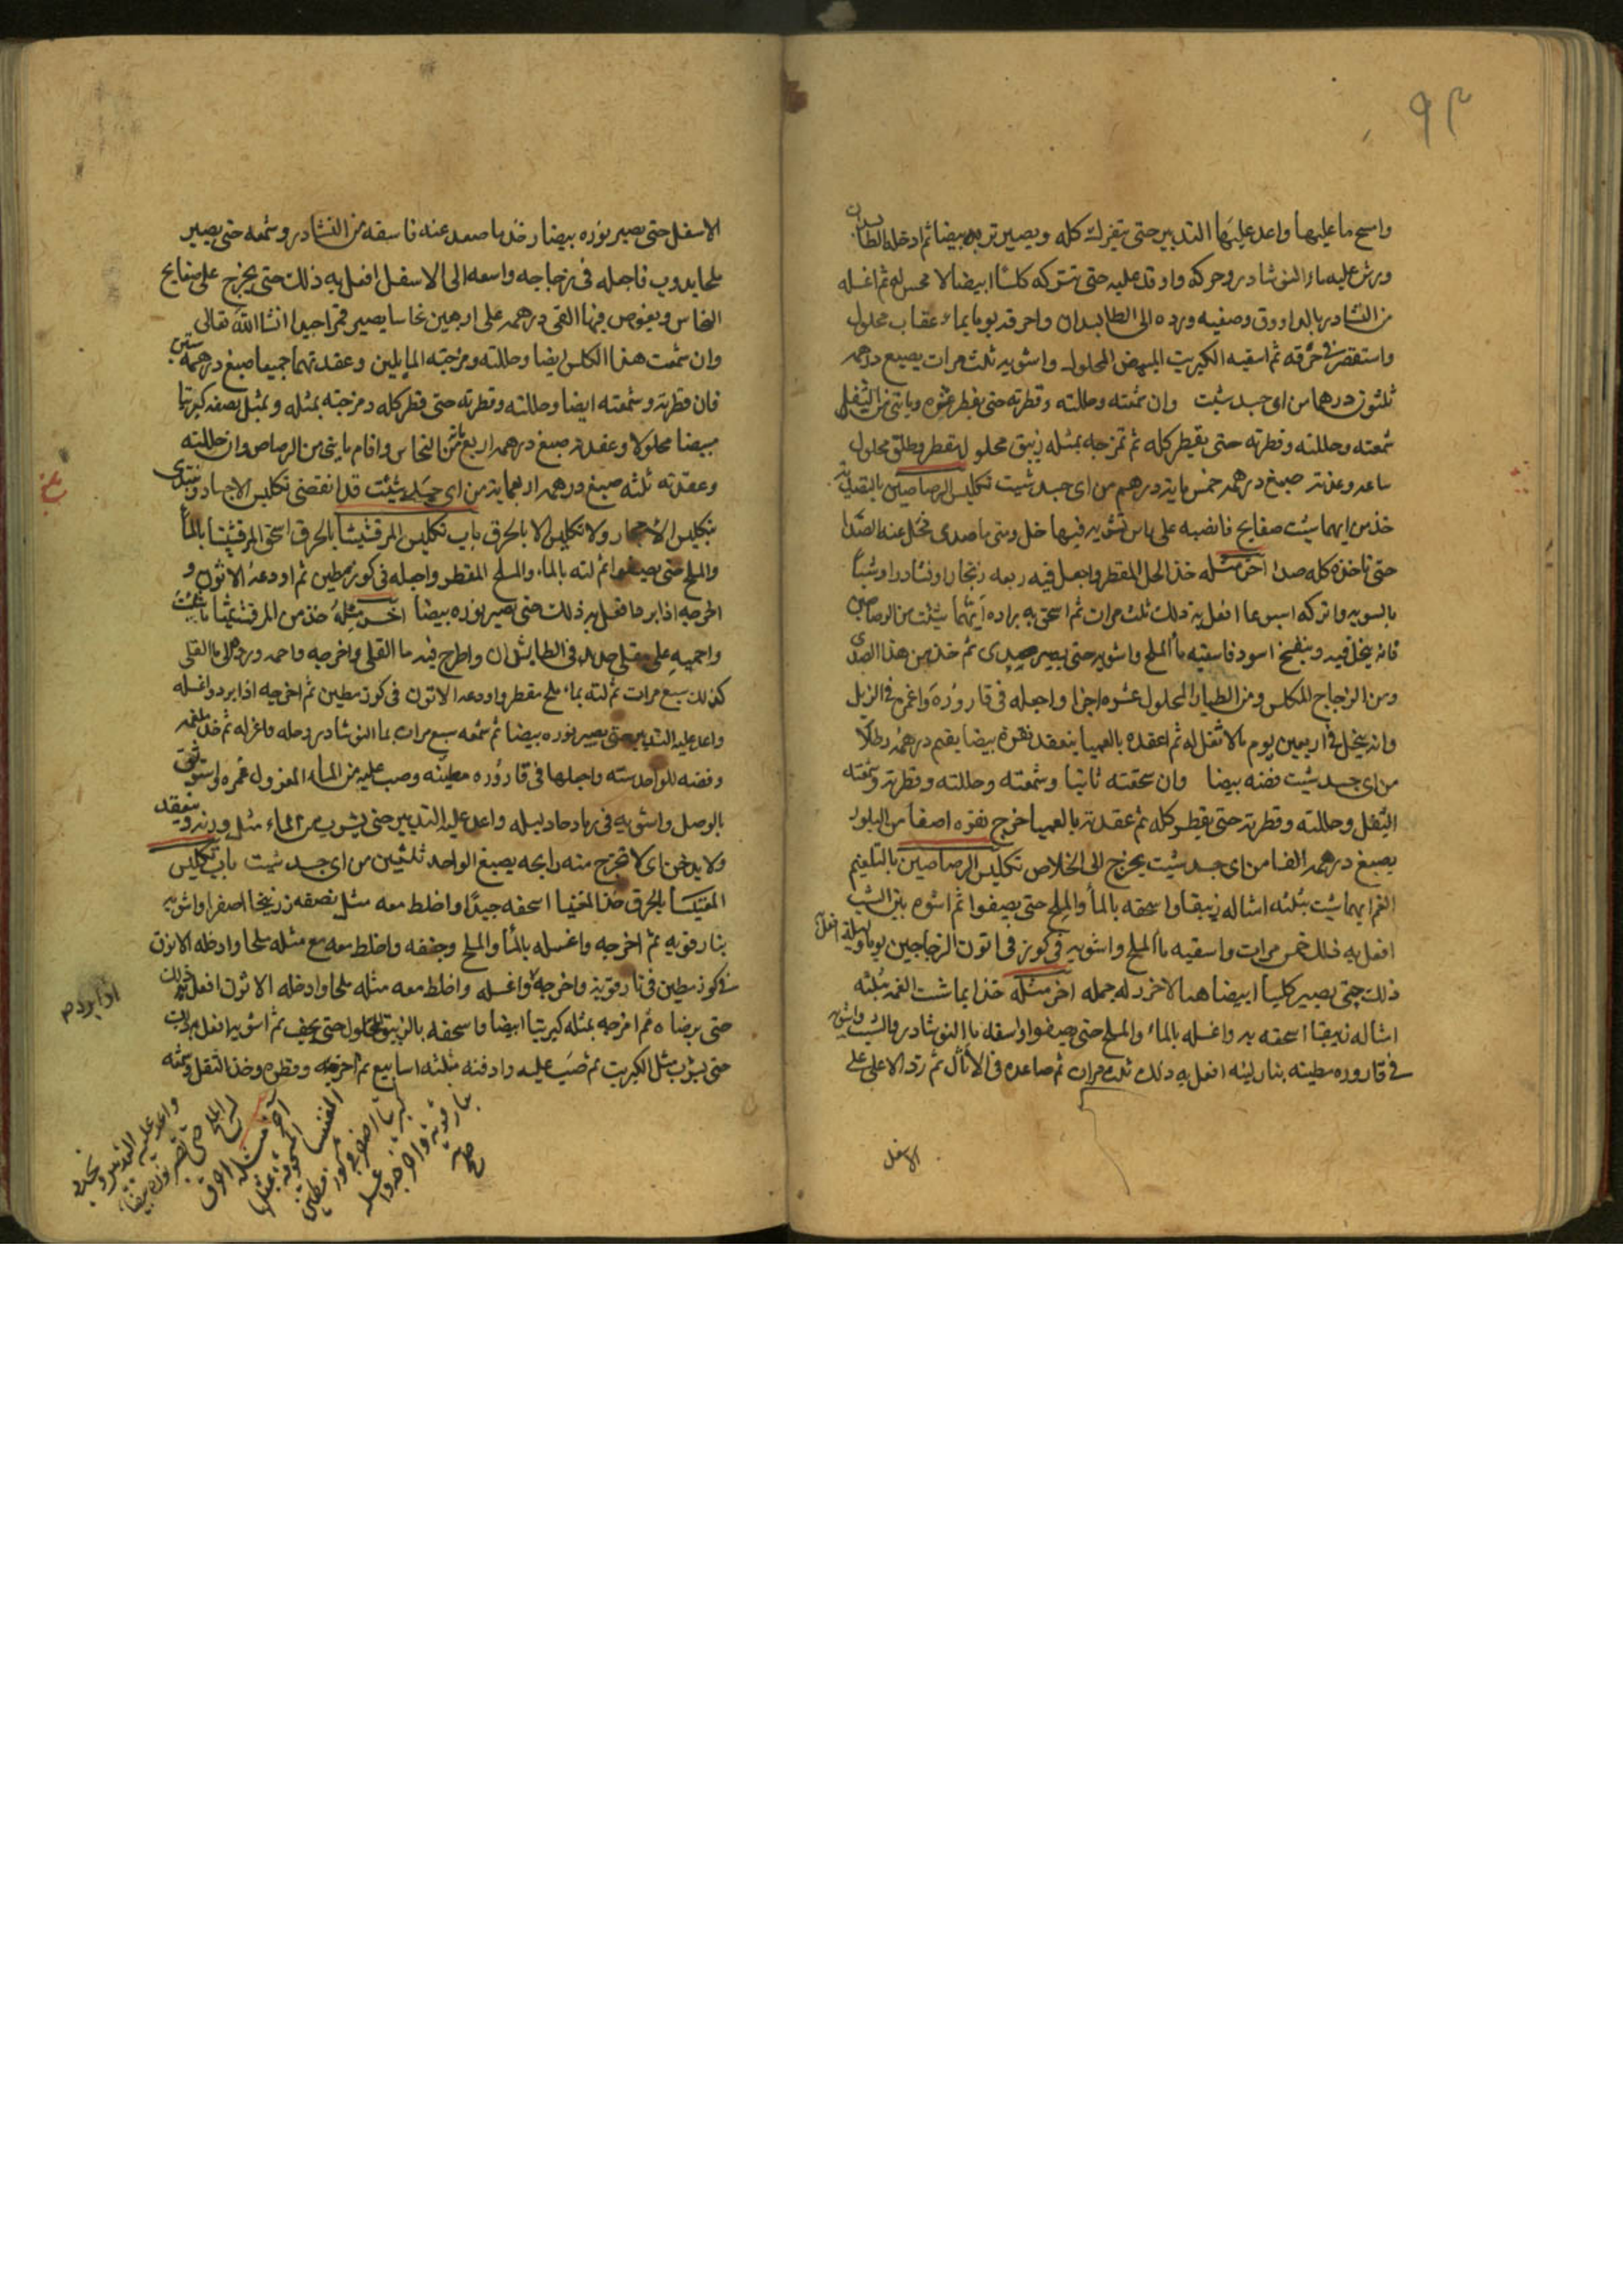 ٩٣
واسح ما عليها واعد عليها التدبير حتى يتفرك كله ويصير تربه بيضا ثم ادخله الطابدان
ورش عليه ماء النوشادر وحركه واوقد عليه حتى تتركه كلسا ابيضا لا محس له ثم اغسله
من النشادر بالراووق وصفيه ورده الى الطابدان واحرقه يوما بماء عقاب محلول
واستقصر في حرقه ثم اسقيه الكبريت المبيض المحلول واشويه ثلث مرات يصبغ درهمه
ثلثون درهما من اى جسد شيت وان شمعته وحللته وقطرته حتى يقطر عشره وياتى من الثفل
شمعته وحللته وقطرته حتى يقطر كله ثم تمزجه بمثله زيبق محلول مقطر وطلق محلول
ساعه وعقدته صبغ درهمه خمس مايه درهم من اى جسد شيت تكليس الرصاصين بالتصديه
خذ من ايهما شيت صفايح فانصبه على باس تشويه فيها خل ومتى ما صدى فخل عنه الصدا
حتى تاخذه كله صدا اخر مثله خذ الخل المقطر واجعل فيه ربعه زنجارا ونشادرا وشبا
بالسويه واتركه اسبوعا افعل به ذلك ثلث مرات ثم اسحق به براده ايهما شيت من الرصاصين
فانه ينحل فيه وينفيخ اسود فاسقيه ماالملح واشويه حتى يصير صدى ثم خذ من هذا الصدى
ومن الزجاج المكلس ومن الطيار المحلول عشره اجزا واجعله في قاروره واغمره في الزبل
وانه ينحل في اربعين يوم مالا ثفل له ثم اعقده بالعميا ينعقد نقره بيضا يقيم درهمه رطلا
من اى جسد شيت فضه بيضا وان سحقته ثانيا وشمعته وحللته وقطرته وشمعته
الثفل وحللته وقطرته حتى يقطر كله ثم عقدته بالعميا خرج نقره اصفا من البلور
يصبغ درهمه الفا من اى جسد شيت يخرج الى الخلاص تكليس الرصاصين بالتلغيم
الغم ايهما شيت بثلثه امثاله زيبقا واسحقه بالما والملح حتى يصفوا ثم اشوه بين الشب
افعل به ذلك خمس مرات واسقيه ماالملح واشويه في كوز في اتون الزجاجين يوما وليله افعل
ذلك حتى يصير كلسا ابيضا هبا لا خرد له جمله اخر مثله خذ ايما شت الغمه بثلثه
امثاله زيبقا اسحقه به واغسله بالماء والملح حتى يصفوا واسقه ماالنوشادر والشب واشويه
في قاروره مطينه بنار لينه افعل به ذلك ثلث مرات ثم صاعده في الاثال ثم رد الاعلى على
الاسفل
الاسفل حتى يصير نوره بيضا وخذ ما صعد عنه فاسقه من النشادر وشمعه حتى يصير
ملحا يدوب فاجعله في زجاجه واسعه الى الاسفل افعل به ذلك حتى يخرج على صفايح
النحاس ويغوص فيها القى درهمه على اربعين نحاسا يصير قمرا جيدا انشا الله تعالى
وان شمعت هذا الكلس ايضا وحللته ومزجته المايلين وعقدتهما جميعا صبغ درهمه ستين
فان قطرته وشمعته ايضا وحللته وقطرته حتى قطر كله ومزجته بمثله وبمثل نصفه كبريتا
مبيضا محلولا وعقدته صبغ درهمه اربع من النحاس واقام مايتى من الرصاص وان حللته
وعقدته ثلثه صبغ درهمه اربعمايه من اى جسد شئت قد انقضى تكليس الاجساد ونبتدى
بتكليس الاحجار ولا تكليس الا بالحرق باب تكليس المرقشيشا بالحرق اسحق المرقشيشا بالما
والملح حتى يصفوا ثم لته بالماء والملح المقطر واجعله في كوز مطين ثم اودعه الاتون و
اخرجه اذا برد افعل به ذلك حتى تصير نوره بيضا اخر مثله خذ من المرقشيثا ما شئت
واحميه على مقلى حديد في الطابشدان واطرح فيه ما القلى واخرجه واحمه ورده الى ماالقلى
كذلك سبع مرات ثم لته بماء ملح مقطر واودعه الاتون في كوز مطين ثم اخرجه اذا برد واغسله
واعد عليه التدبير حتى يصير نوره بيضا ثم شمعه سبع مرات بماالنوشادر وحله واعزله ثم خذ
وفضه للواحد سته واجعلها في قاروره مطينه وصب عليه من الماء المعزول غمره واستوثق
بالوصل واشويه في رماد حار ليله واعد عليه التدبير حتى يشرب من الماء مثل وزنه وينعقد
ولا يدخن اى لا تخرج منه رايحه يصبغ الواحد ثلثين من اى جسد شيت باب تكليس
المغنيسا بالحرق خذ المغنيسا اسحقه جيدا واخلط معه مثل نصفه زرنيخا اصفرا واشويه
بنار قويه ثم اخرجه واغسله بالما والملح وجففه واخلط معه مع مثله ملحا وادخله الاتون
في كوز مطين في نار قويه واخرجه واغسله واخلط معه مثله ملحا وادخله الاتون افعل به ذلك
حتى برضاه ثم امزجه بمثله كبريتا ابيضا واسحقه بالزيبق المحلول حتى يجف ثم اشويه افعل مرات
حتى يشرب مثل الكبريت ثم صب عليه وادفنه ثلثه اسابيع ثم اخرجه وقطره وخذ الثفل وشمعه
اذا بردم
اخر مثله احرق
المغنيسا المحرقه بمثلها
كبريتا اصفر في كوز مطين
بنار قويه واخرجه واغسله
صح